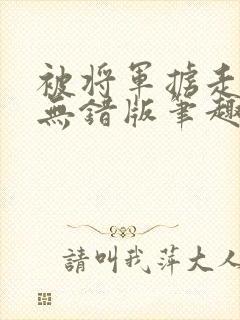 被将軍掳走
無錯版筆趣
請叫我萍大人